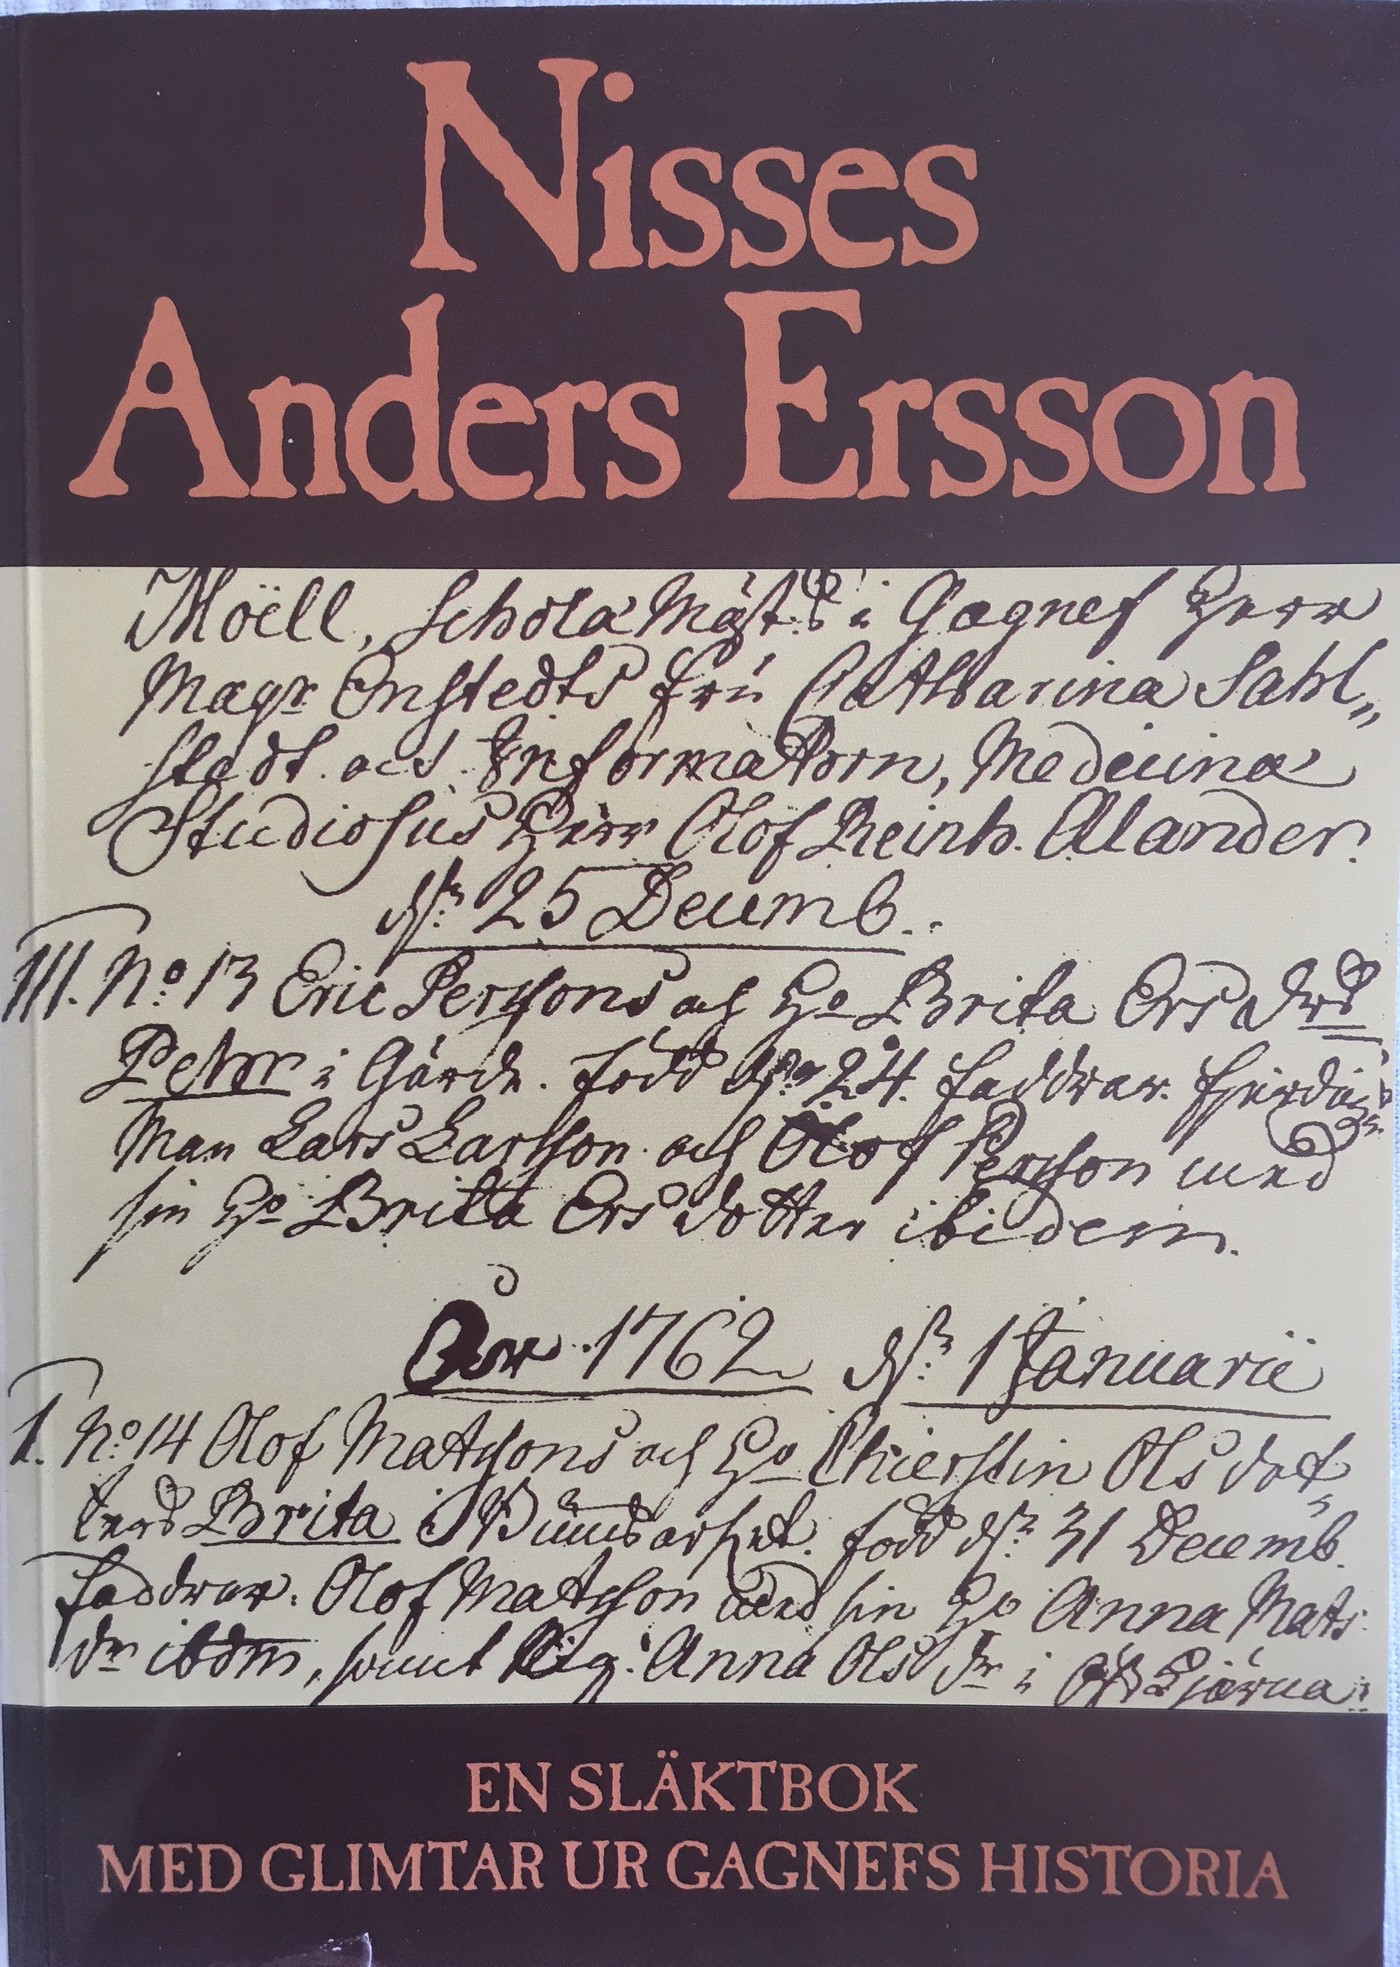 Nisses
Anders Ersson
Moëll, Schola Mäst: i Gagnef Herr
Magr Enstedts fru Catharina Sahl„
stedt. och Informatorn, Medicinæ
Studiosus Herr Olof Reinh. Alander.
dn 25 Decemb.
III. No: 13 Eric Perssons och Ho Brita Ers
Pehr i Gärde. född dn 24. faddrar.
Man Lars Larsson och Olof Person med
sin Ho Brita Ers dotter ibidem.
1762 dn 1 Januarii
I. No: 14 Olof Matssons och Ho Chierstin Ols dot
ters Brita i född dn 31 Decemb.
faddrar. Olof Matsson med sin Ho Anna Mats
dr ibdm, samt Pig: Anna Ols dr i
EN SLÄKTBOK
MED GLIMTAR UR GAGNEFS HISTORIA